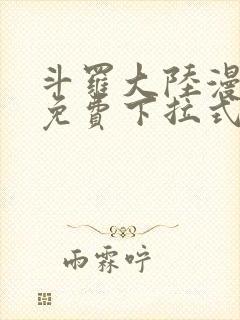 斗羅大陸漫
免費下拉式
雨霖咛